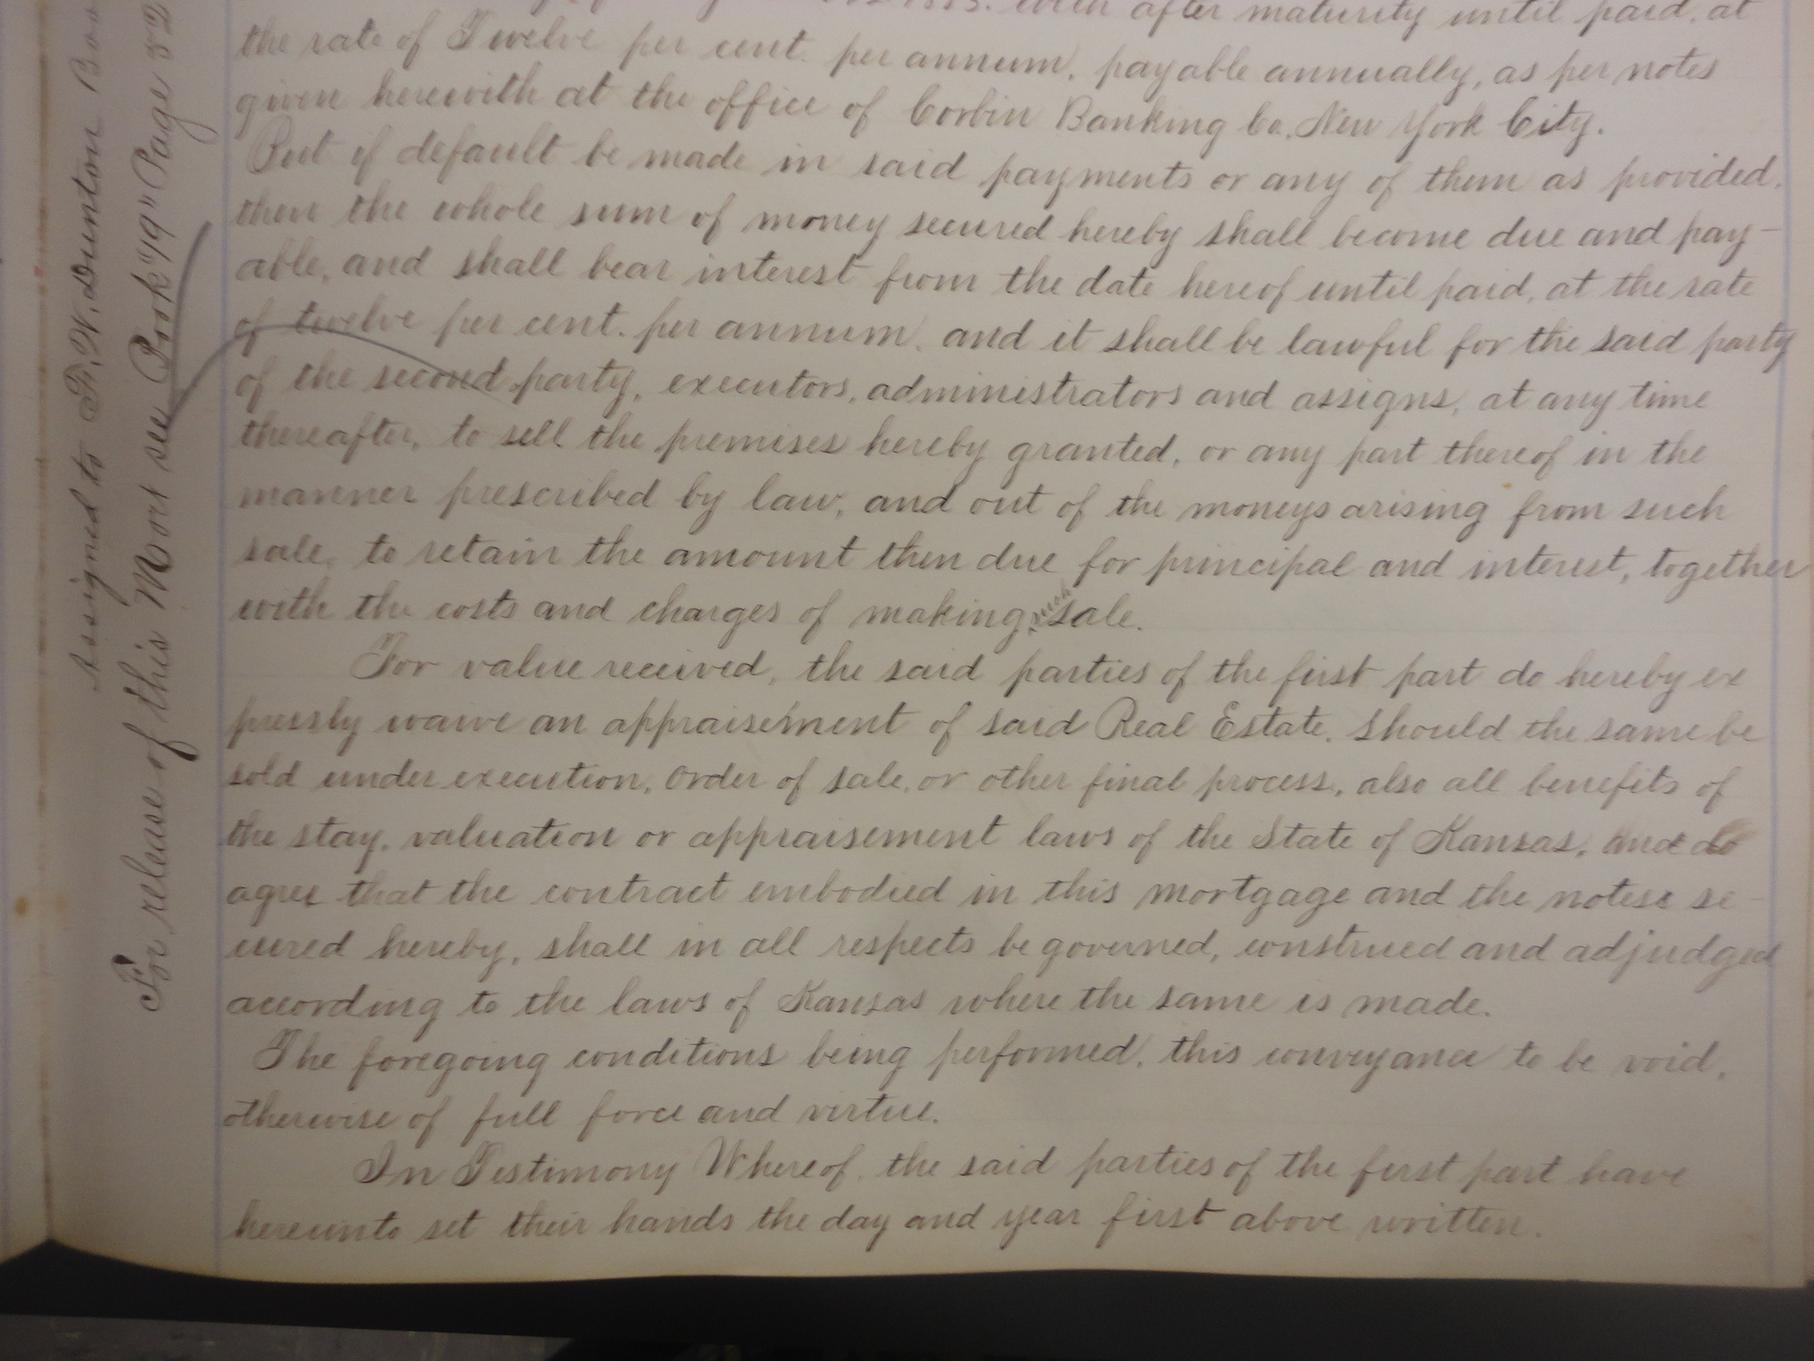 with after maturity until paid, at
the rate of Twelve per cent. per annum, payable annually, as per notes
given herewith at the office of Corbin Banking Co. New York City.
But if default be made in said payments or any of them as provided,
then the whole sum of money secured hereby shall become due and pay-
able, and shall bear interest from the date hereof until paid, at the rate
of twelve per cent. per annum, and it shall be lawful for the said party
of the second party, executors, administrators and assigns, at any time
thereafter, to sell the premises hereby granted, or any part thereof in the
manner prescribed by law, and out of the moneys arising from such
sale, to retain the amount then due for principal and interest, together
with the costs and charges of making such sale.
For value received, the said parties of the first part do hereby ex
pressly waive an appraisement of said Real Estate, should the same be
sold under execution, order of sale, or other final process, also all benefits of
the stay, valuation or appraisement laws of the State of Kansas, and do
agree that the contract embodied in this mortgage and the notes se-
cured hereby, shall in all respects be governed, construed and adjudged
according to the laws of Kansas where the same is made.
The foregoing conditions being performed, this conveyance to be void,
otherwise of full force and virtue.
In Testimony Whereof, the said parties of the first part have
hereunto set their hands the day and year first above written.
Assigned to F. W. Dunton
For release of this Mort see Book "19" Page 32